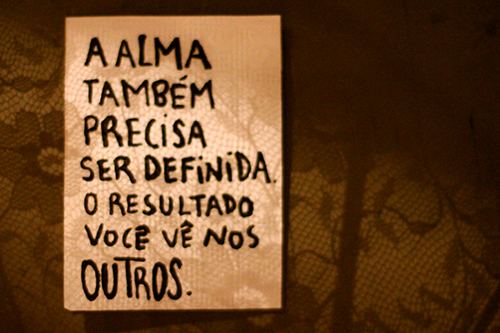 A ALMA
TAMBÉM
PRECISA
SER DEFINIDA.
O RESULTADO
VOCÊ VÊ NOS
OUTROS.